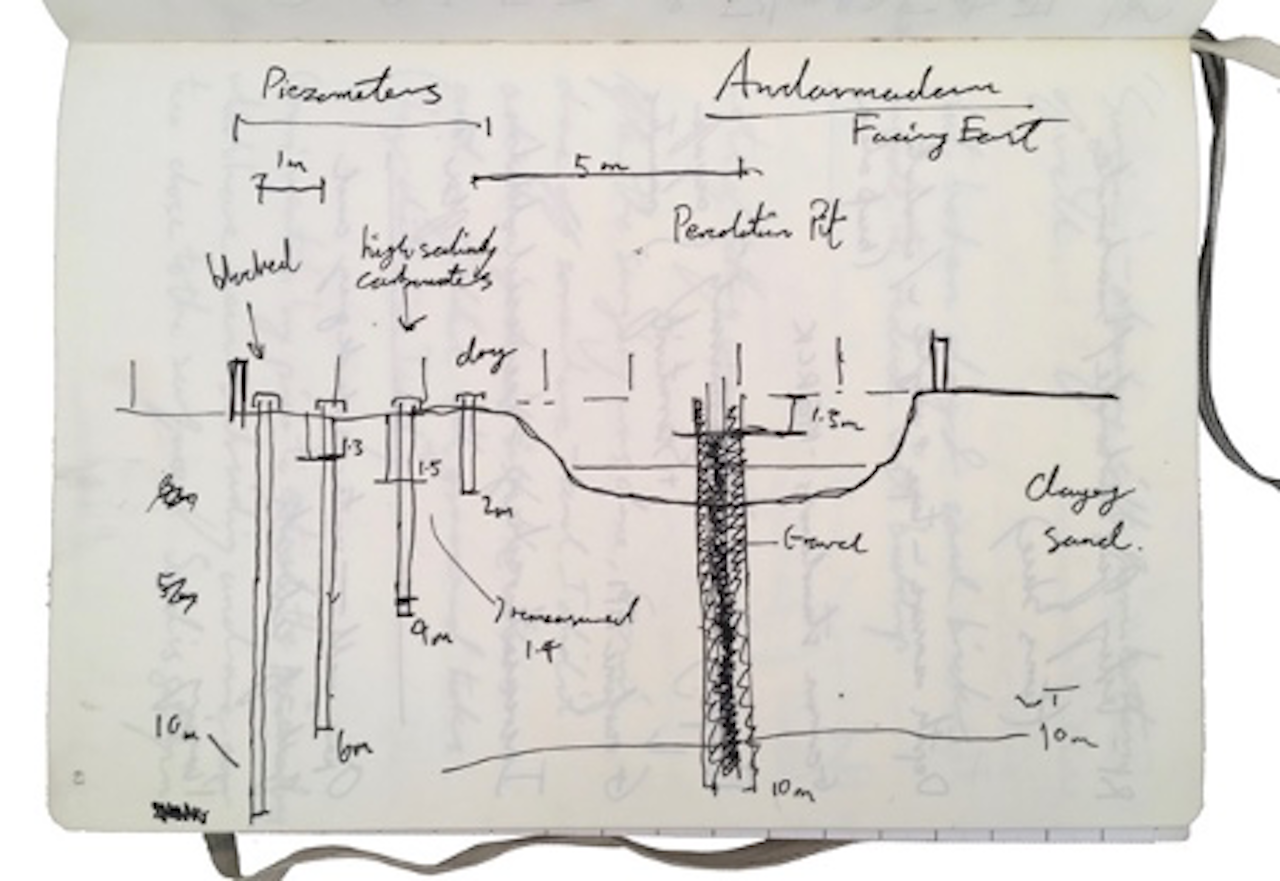 Piezometers
Andarmadam
Facing East
1m
5 m
Percolation Pit
blocked
high salinity
carbonates
dry
1.3
1.5
1.3m
2m
Clayey
sand.
Gravel
5m
remeasured
1.4
4m
10m
6m
WT
10m
10m